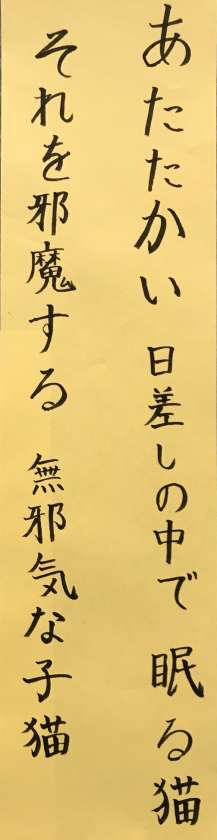 あたたかい 日差しの中で 眠る猫
それを邪魔する 無邪気な子猫